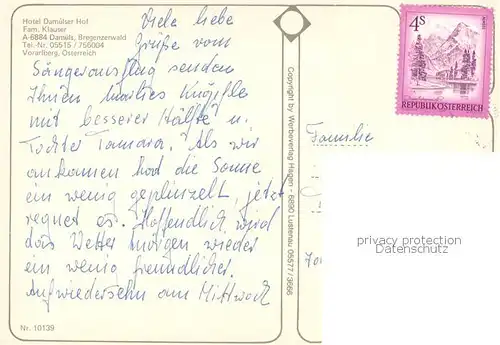 Hotel Damülser Hof
Fam. Klauser
A-6884 Damüls, Bregenzerwald
Tel.-Nr. 05515 / 756004
Vorarlberg, Österreich
Viele liebe
Grüße vom
Sängerausflug senden
Ihnen Marlies
mit besserer Hälfte u.
Tochter Tamara. Als wir
ankamen hat die Sonne
ein wenig geplinzelt, jetzt
regnet es. Hoffendlich wird
das Wetter morgen wieder
ein wenig freundlicher.
Aufwiedersehn am Mittwoch
Nr. 10139
Copyright by Werbeverlag Hagen - 6890 Lustenau 05577/3666
4S
REPUBLIK ÖSTERREICH
Familie
privacy protection
Datenschutz